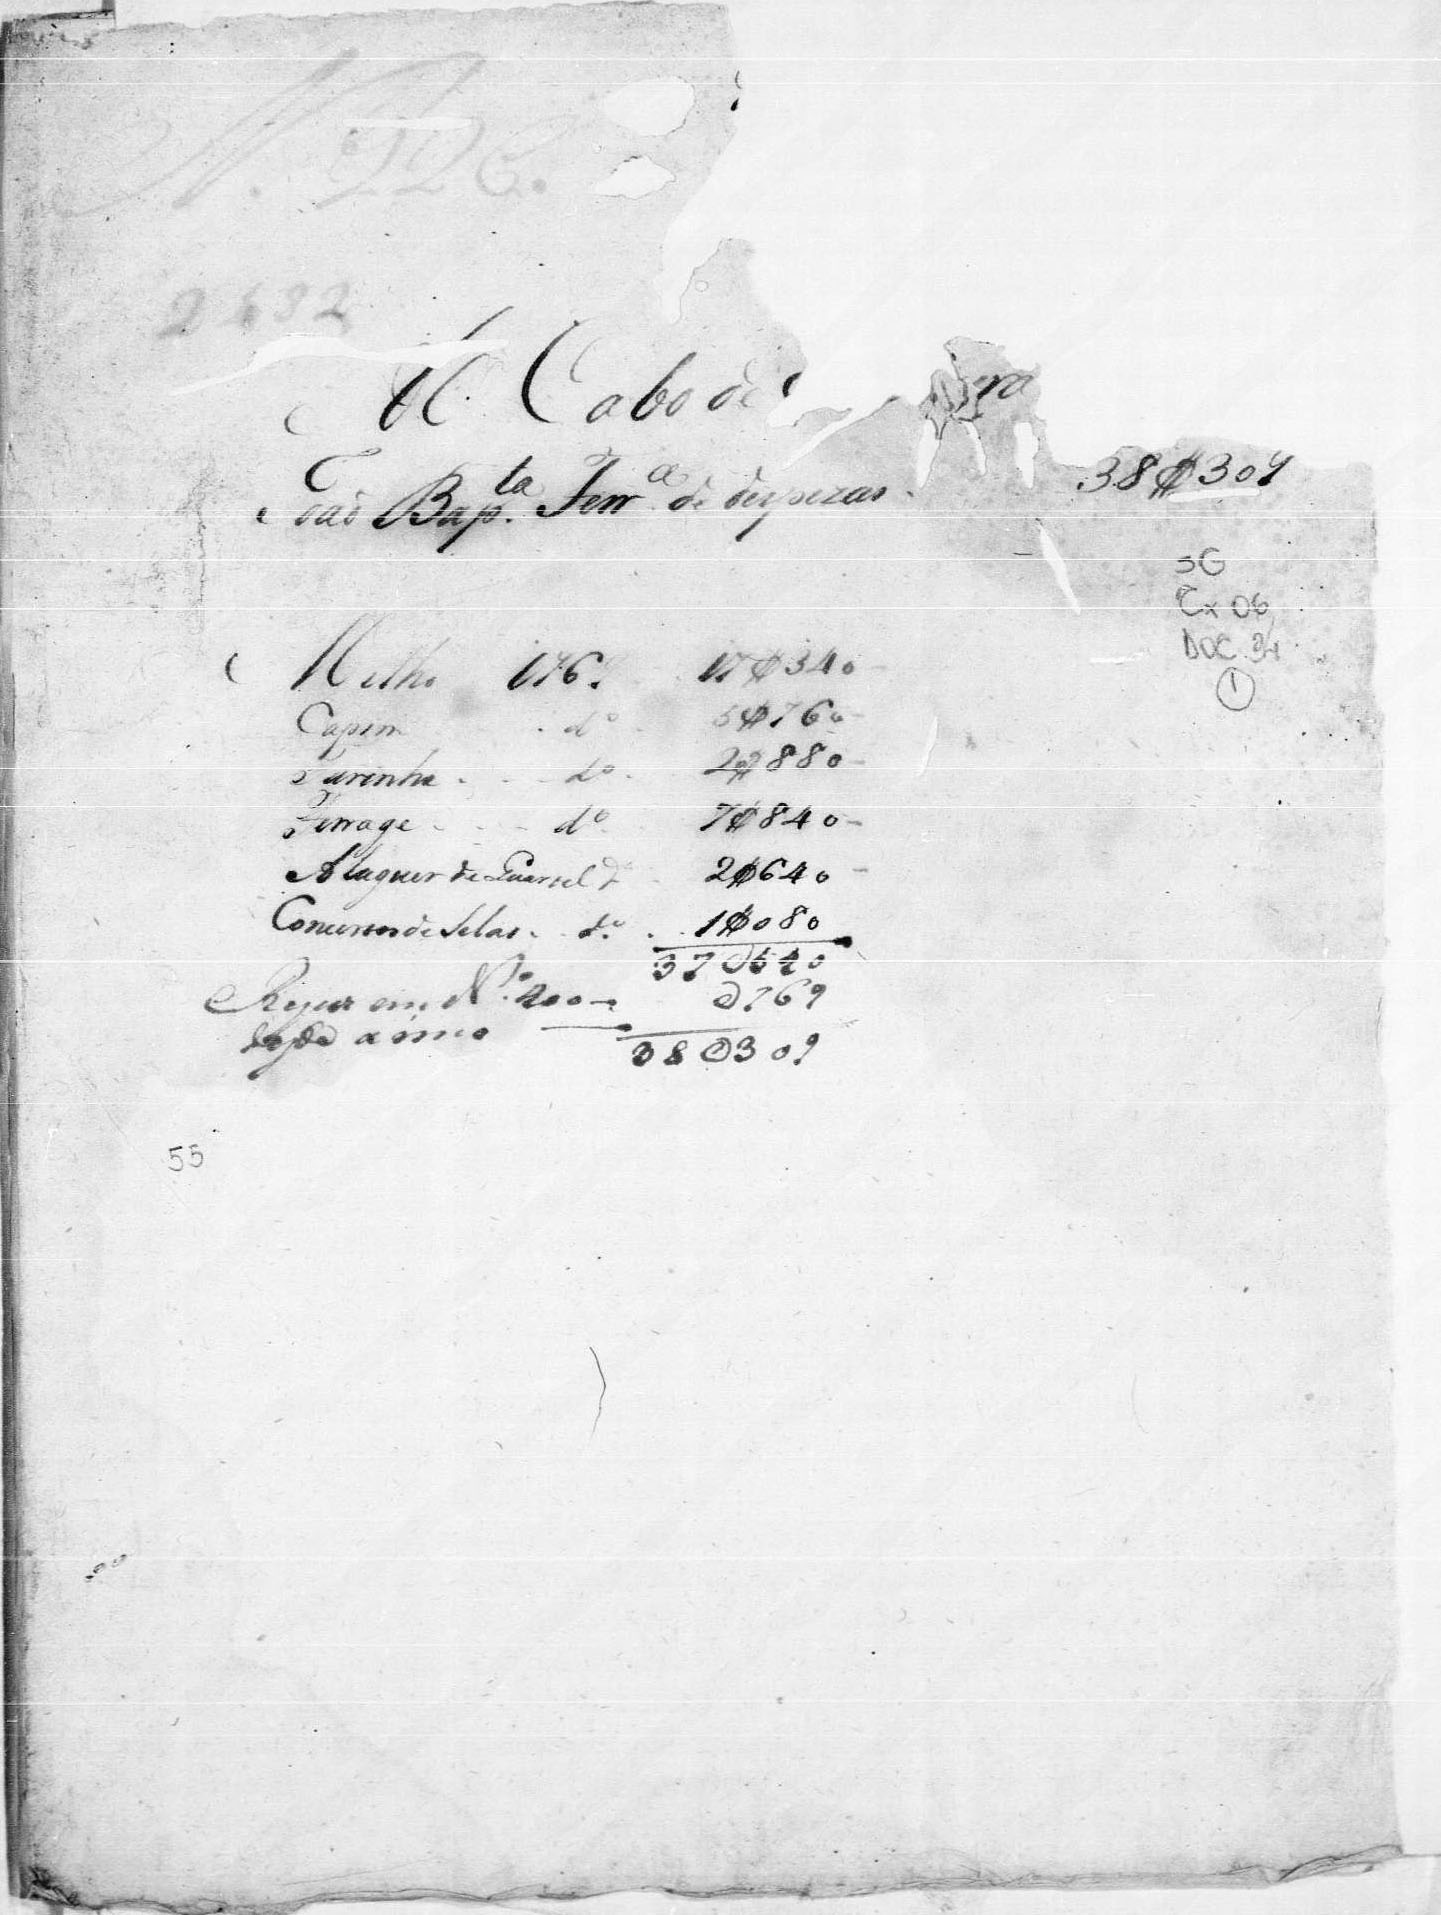 N. 
2432
Al. Cabo de
João Bap.ta Ferr.a de despezas. 38$309
SG
Cx 06
DOC 34
1
Milho 1769 17$340
Capim d.o 5$760
Farinha d.o 2$880
Ferrage d.o 7$840
Alaguer de Quartel d.o 2$640
Concertos de Selas d.o 1$080
37$540
N.o 400 $769
38$309
55